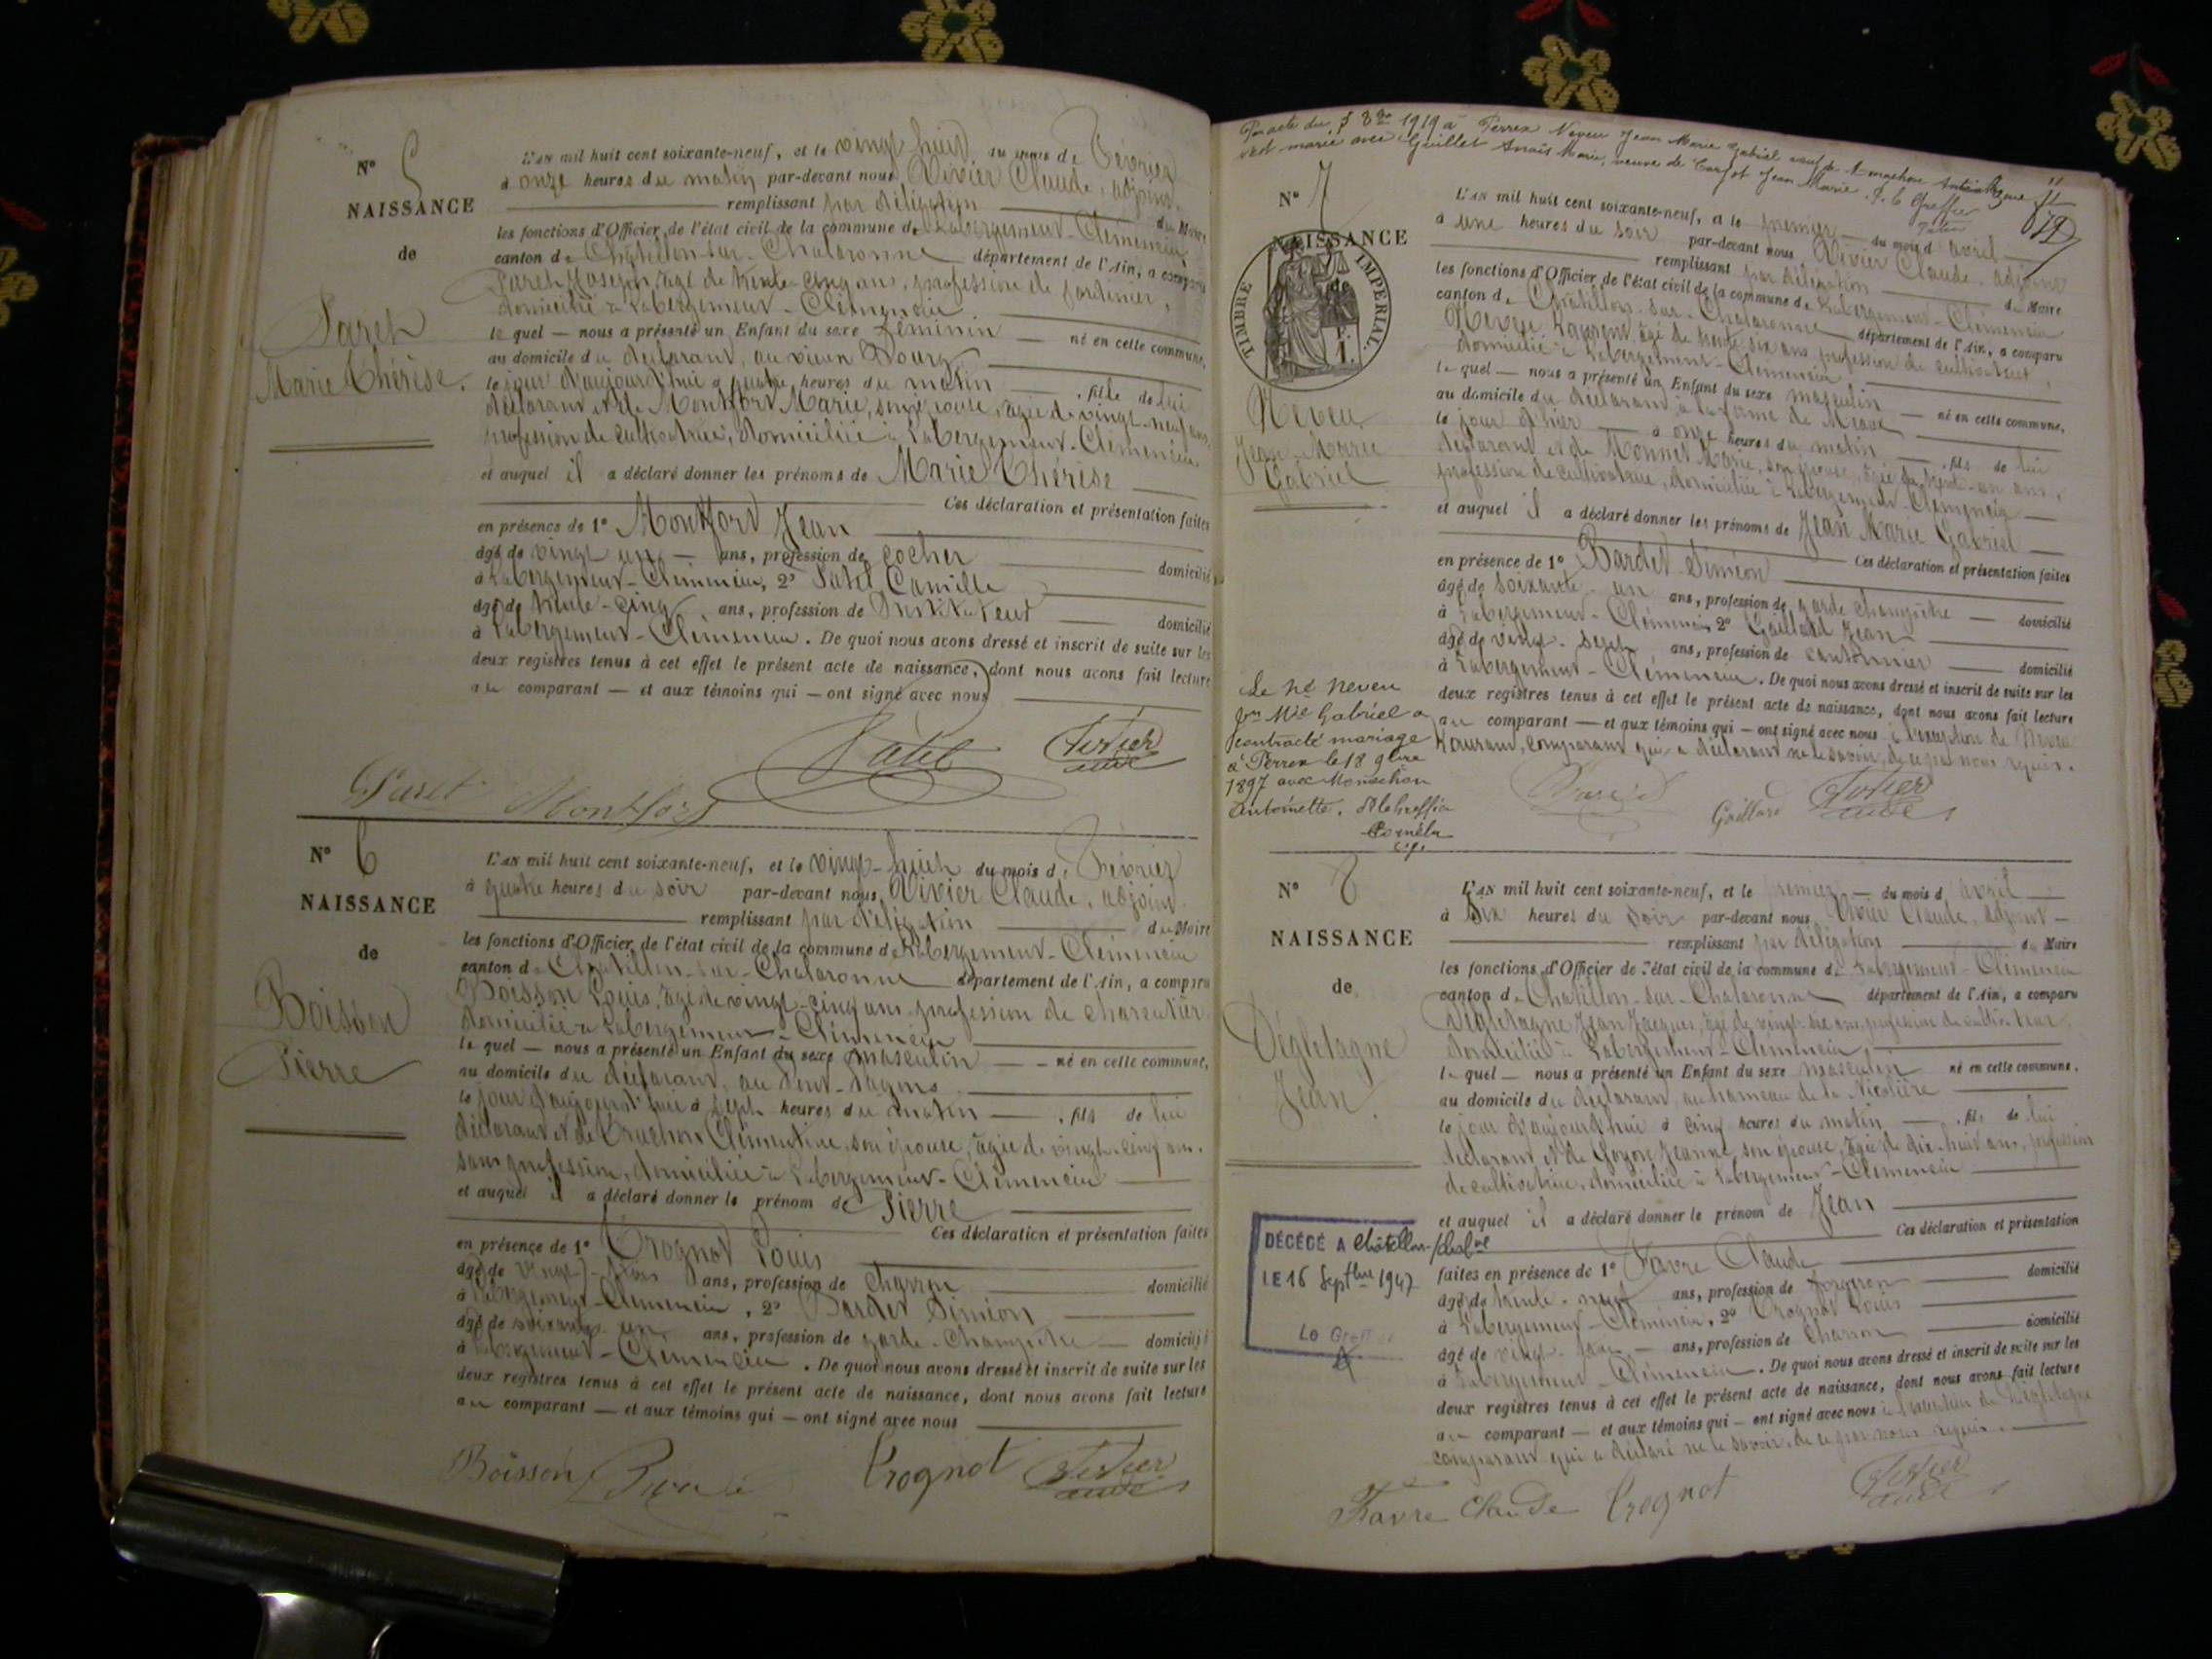 N° 5
NAISSANCE
de
Marie Thérèse.
L'AN mil huit cent soixante-neuf, et le vingt huit du mois de Février
à onze heures du matin par-devant nous Vivier Claude, adjoint
remplissant par délégation du Maire
les fonctions d'Officier de l'état civil de la commune de Labergement-Clémencia
canton de Châtillon-sur-Chalaronne département de l'Ain, a comparu
Joseph, âgé de trente-cinq ans, profession de jardinier,
domicilié à Labergement-Clémencia
lequel — nous a présenté un Enfant du sexe féminin — né en cette commune,
au domicile du déclarant, au vieux Bourg
le jour d'aujourd'hui à quatre heures du matin — , fille de lui
déclarant et de Montfort Marie, son épouse, âgée de vingt-neuf ans,
profession de cultivatrice, domiciliée à Labergement-Clémencia
et auquel il a déclaré donner les prénoms de Marie Thérèse
Ces déclaration et présentation faites
en présence de 1° Montfort Jean
âgé de vingt un — ans, profession de cocher domicilié
à Labergement-Clémencia, 2° Patel Camille
âgé de trente-cinq ans, profession de Instituteur domicilié
à Labergement-Clémencia. De quoi nous avons dressé et inscrit de suite sur les
deux registres tenus à cet effet le présent acte de naissance, dont nous avons fait lecture
au comparant — et aux témoins qui — ont signé avec nous
Patel Vivier
Claude
Montfort
N° 6
NAISSANCE
de
Boisson
Pierre
L'AN mil huit cent soixante-neuf, et le vingt-huit du mois de Février
à quatre heures du soir par-devant nous Vivier Claude, adjoint
remplissant par délégation du Maire
les fonctions d'Officier de l'état civil de la commune de Labergement-Clémencia
canton de Châtillon-sur-Chalaronne département de l'Ain, a comparu
Boisson Louis, âgé de vingt-cinq ans, profession de
domicilié à Labergement-Clémencia
lequel — nous a présenté un Enfant du sexe masculin — né en cette commune,
au domicile du déclarant, au
le jour d'aujourd'hui à sept heures du matin — , fils de lui
déclarant et de Clémentine, son épouse, âgée de vingt-cinq ans,
sans profession, domiciliée à Labergement-Clémencia
et auquel il a déclaré donner le prénom de Pierre
Ces déclaration et présentation faites
en présence de 1° Crognot Louis
âgé de ans, profession de charron domicilié
à Labergement-Clémencia, 2° Bardet Siméon
âgé de soixante un ans, profession de garde-champêtre — domicilié
à Labergement-Clémencia. De quoi nous avons dressé et inscrit de suite sur les
deux registres tenus à cet effet le présent acte de naissance, dont nous avons fait lecture
au comparant — et aux témoins qui — ont signé avec nous
Boisson Crognot Vivier
Claude
Par acte du 1919 à Perrex Neveu Jean Marie Gabriel veuf de
s'est marié avec Guillet Anaïs Marie, veuve de Jean Marie. Le Greffier
N° 7
NAISSANCE
de
TIMBRE IMPÉRIAL.
Neveu
Jean-Marie
Gabriel
L'AN mil huit cent soixante-neuf, et le premier du mois d avril
à une heures du soir par-devant nous Vivier Claude, adjoint
remplissant par délégation du Maire
les fonctions d'Officier de l'état civil de la commune de Labergement-Clémencia
canton de Châtillon-sur-Chalaronne département de l'Ain, a comparu
Neveu Laurent, âgé de trente six ans, profession de cultivateur,
domicilié à Labergement-Clémencia
lequel — nous a présenté un Enfant du sexe masculin — né en cette commune,
au domicile du déclarant, à la ferme de
le jour d'hier à onze heures du matin — , fils de lui
déclarant et de Monnet Marie, son épouse, âgée de trente-un ans,
profession de cultivatrice, domiciliée à Labergement-Clémencia
et auquel il a déclaré donner les prénoms de Jean Marie Gabriel
Ces déclaration et présentation faites
en présence de 1° Bardet Siméon
âgé de soixante-un ans, profession de garde champêtre — domicilié
à Labergement-Clémencia, 2° Gaillard Jean
âgé de vingt-sept ans, profession de cantonnier domicilié
à Labergement-Clémencia. De quoi nous avons dressé et inscrit de suite sur les
deux registres tenus à cet effet le présent acte de naissance, dont nous avons fait lecture
au comparant — et aux témoins qui — ont signé avec nous à l'exception de Neveu
Laurent, comparant qui a déclaré ne le savoir, de ce par nous requis.
Vivier
Claude
Le né Neveu
Jn Mie Gabriel a
contracté mariage
à Perrex le 18 9bre
1897 avec
Antoinette.
N° 8
NAISSANCE
de
Dégletagne
Jean.
L'AN mil huit cent soixante-neuf, et le premier — du mois d avril
à six heures du soir par-devant nous Vivier Claude, adjoint —
remplissant par délégation du Maire
les fonctions d'Officier de l'état civil de la commune de Labergement-Clémencia
canton de Châtillon-sur-Chalaronne département de l'Ain, a comparu
Dégletagne Jean Jacques, âgé de vingt-six ans, profession de cultivateur,
domicilié à Labergement-Clémencia,
lequel — nous a présenté un Enfant du sexe masculin né en cette commune,
au domicile du déclarant, au hameau de la Nicolière
le jour d'aujourd'hui à cinq heures du matin — , fils de lui
déclarant et de Goyon Jeanne, son épouse, âgée de dix-huit ans, profession
de cultivatrice, domiciliée à Labergement-Clémencia
et auquel il a déclaré donner le prénom de Jean
Ces déclaration et présentation
faites en présence de 1° Favre Claude
âgé de trente-neuf ans, profession de domicilié
à Labergement-Clémencia, 2° Crognot Louis
âgé de — ans, profession de charron domicilié
à Labergement-Clémencia. De quoi nous avons dressé et inscrit de suite sur les
deux registres tenus à cet effet le présent acte de naissance, dont nous avons fait lecture
au comparant — et aux témoins qui — ont signé avec nous à l'exception de Dégletagne
comparant qui a déclaré ne le savoir, de ce par nous requis.
DÉCÉDÉ A Châtillon-s/Chalne
LE 16 Septbre 1947
Le Greffier
Favre Claude Crognot Vivier
Claude